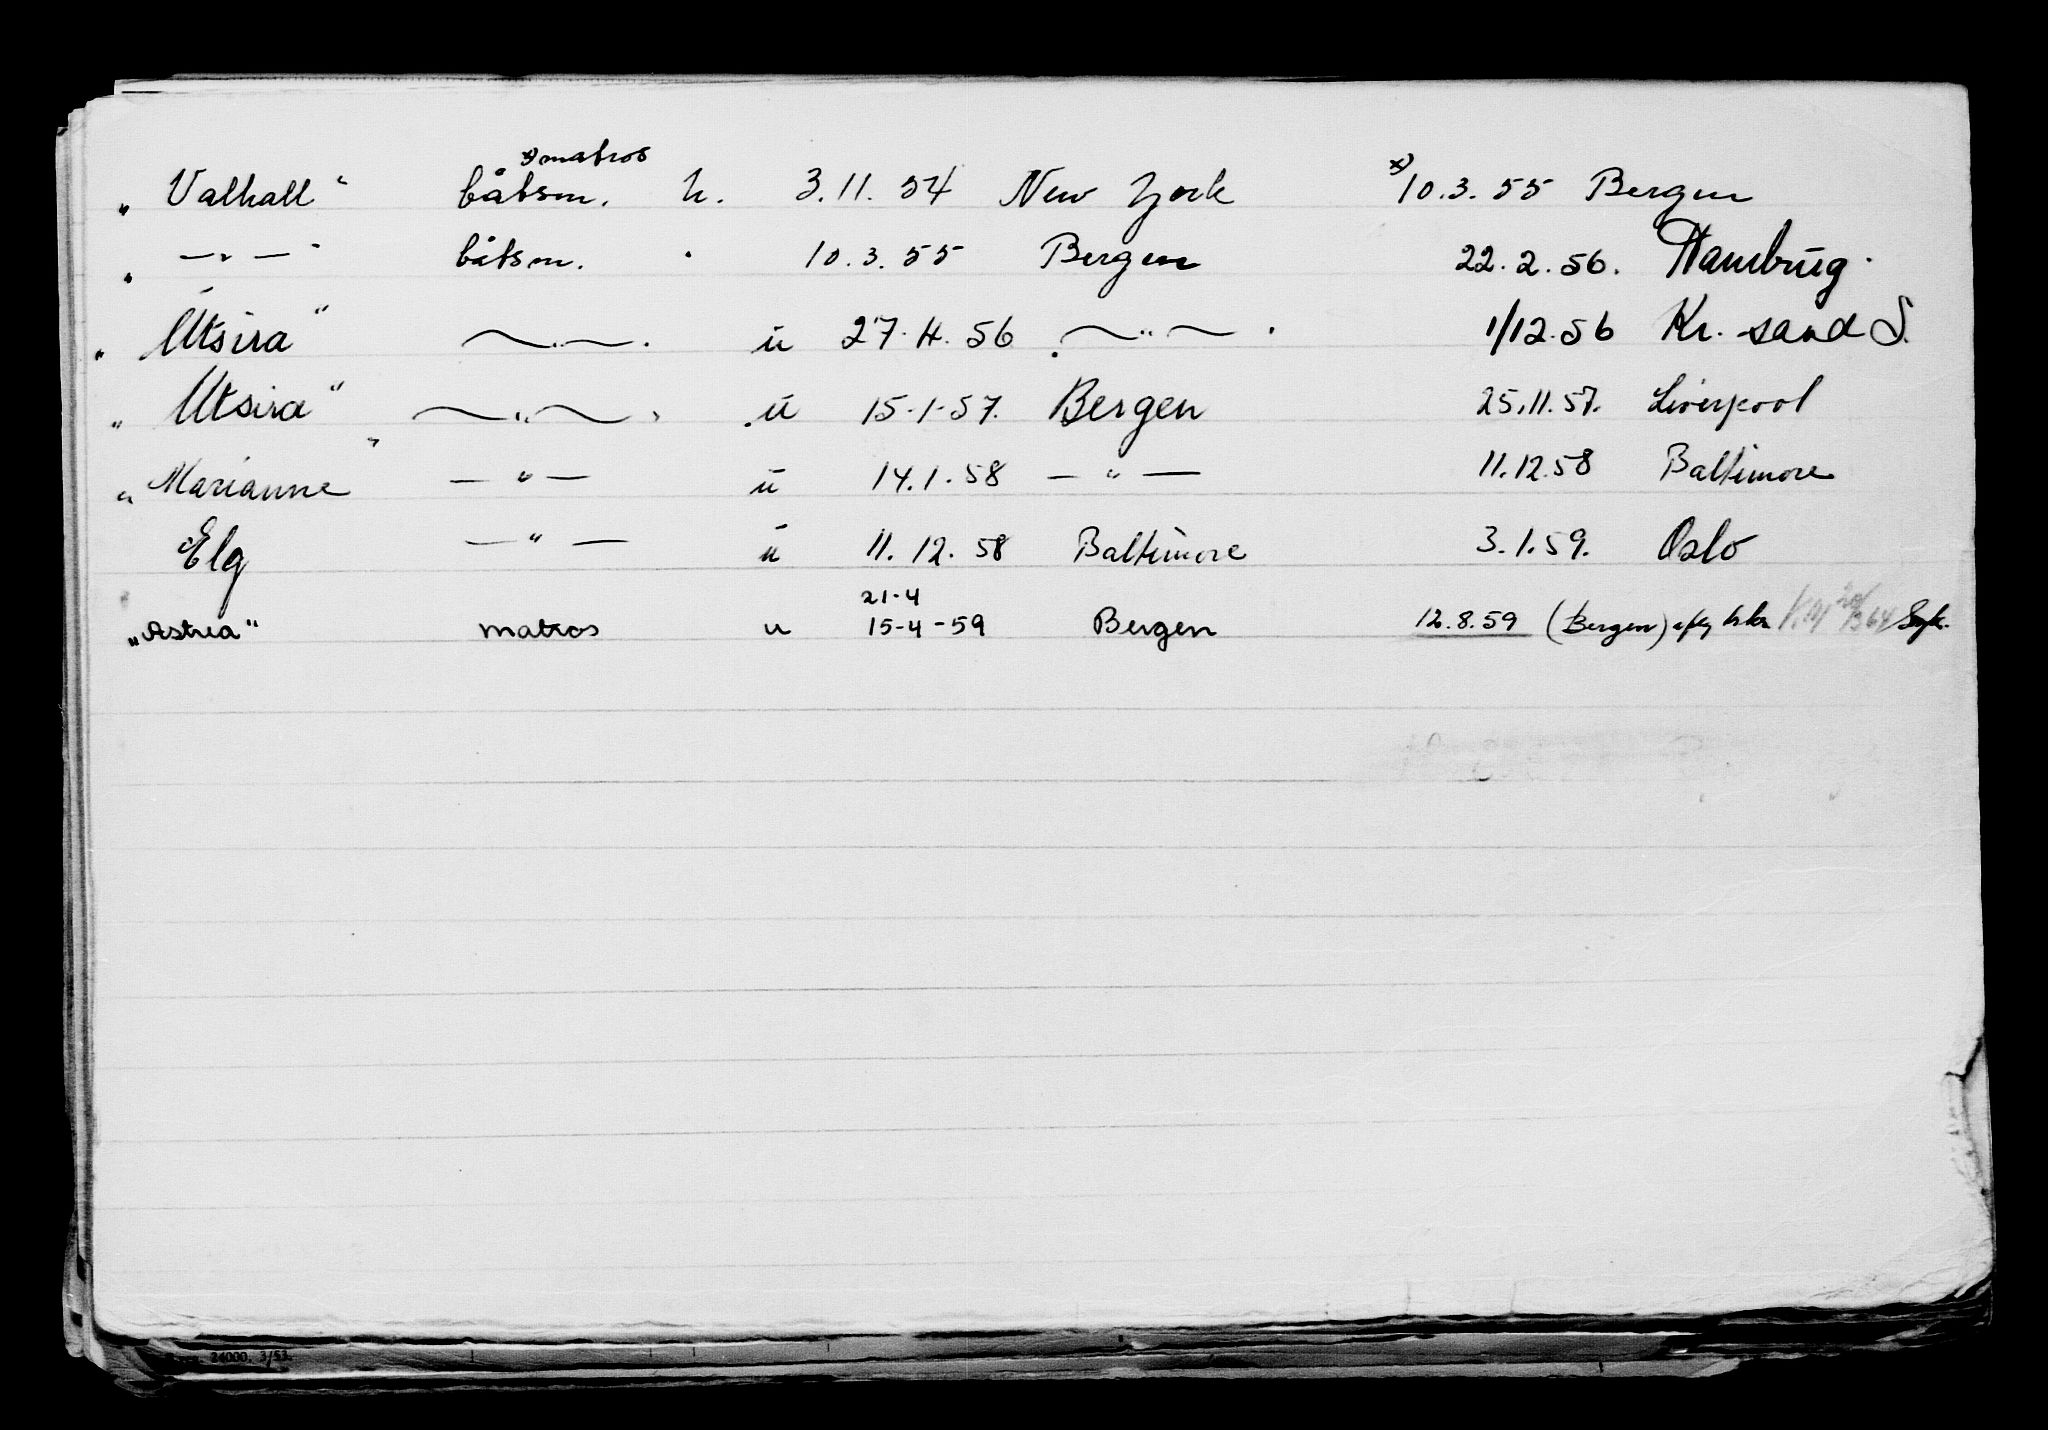 x) matros
„ Valhall“ båtsm. u. 3.11.54 New York x) 10.3.55 Bergen
„ — „ — “ båtsm. " 10.3.55 Bergen 22.2.56. Hamburg.
„ Utsira“ — „ — u 27.11.56 — „ — 1/12.56 Kr. sand S.
„ Utsira“ — „ — u 15-1-57. Bergen 25.11.57. Liverpool
„ Marianne“ — „ — u 14.1.58 — „ — 11.12.58 Baltimore
Elg — „ — u 11.12.58 Baltimore 3.1.59. Oslo
21-4
„Astrea“ matros u 15-4-59 Bergen 12.8.59 (Bergen)
24000. 3/52.